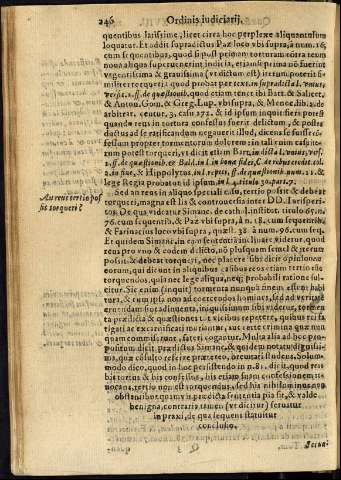 246 Ordinis Iudiciarij,
quentibus latissime, licet circa hoc perplexe aliquantulum
loquatur. Et addit supradictus Paz loco vbi supra, à num. 16;
cum sequentibus, quod si post primam torturam certa reum
noua aliqua superuenerint indicia, etiam si prima nõ fuerint
vrgentissima & grauissima (vt dictum est) iterum poterit si-
militer torqueri: quod probat per text. in supradicta l. vnius,
vers.1. ff. de quæstionib. quod etiam tenet ibi Batt. & Salicet,
& Anton. Gom. & Greg. Lup. vbi supra, & Menoc. lib. 2. de
arbitrar. centur. 3. casu 272. & id ipsum inquit fieri posse
quando reus in tortura confessus fuerit delictum, & postea
ductus ad se ratificandum negauerit illud, dicens se fuisse cõ-
fessum propter tormentorum dolorem: in tali enim casu ite-
rum potest torqueri, vt dicit etiam Bart. in dicta l. vnius, vers.
1. ff. de quæstionib. & Bald. in l. in bonæ fidei, C. de rebus credit. col.
2. in fine, & Hippolytus. in l. repeti, ff. de quæstionib. num. 21. &
lege Regia probatum id ipsum in l. 4. titulo 30. part. 7.
An reus tertio pos
sit torqueri?
Sed an reus in aliquo speciali casu, tertio possit & debeat
torqueri, magna est lis & controuersia inter DD. Iurisperi-
tos. De qua videatur Simanc. de cathol. instit. titulo 65. n.
76. cum sequentib. & Paz vbi supra, à n. 18. cum sequentib.
& Farinacius loco vbi supra, quæst. 38. à num. 96. cum seq.
Et quidem Simanc. in eam sententiam inclinare videtur, quod
reus pro vno & eodem delicto, nõ plusquam semel & iterum
possit & debeat torqueri, nec placere sibi dicit opinionem
eorum, qui dicunt in aliquibus casibus reos etiam tertio esse
torquendos, quia nec lege aliqua, neque probabili ratione ful-
citur. Sic enim (inquit) tormenta nunquã quem essent habi-
tura, & cum ipsa non ad coercendos homines, sed ad veritatẽ
eruendam sup adinuenta, iniquissimum sibi videtur, tormen-
ta prædicta & quæstiones toties repetere, quibus rei fa-
tigati ac excarnificati moriantur, aut certe crimina quæ nun
quam commiserant, fateri cogantur. Multa alia ad hoc pro-
positum dicit prædictus Simanc. & quidem notatu dignissi-
ma, quæ consulto referre prætereo, breuitati studens. Solum-
modo dico, quod in hoc persistendo in n. 81. dicit, quod reus
bis tortus & bis confessus, bis etiam suam confessionem ne-
uocans, tertio non est torquendus, sed his nihilominus non
obstantibus quamuis prædicta sententia pia sit, & valde
benigna, contraria tamen (vt dicitur) seruatur
in praxi, de qua sequens statuitur
conclusio.